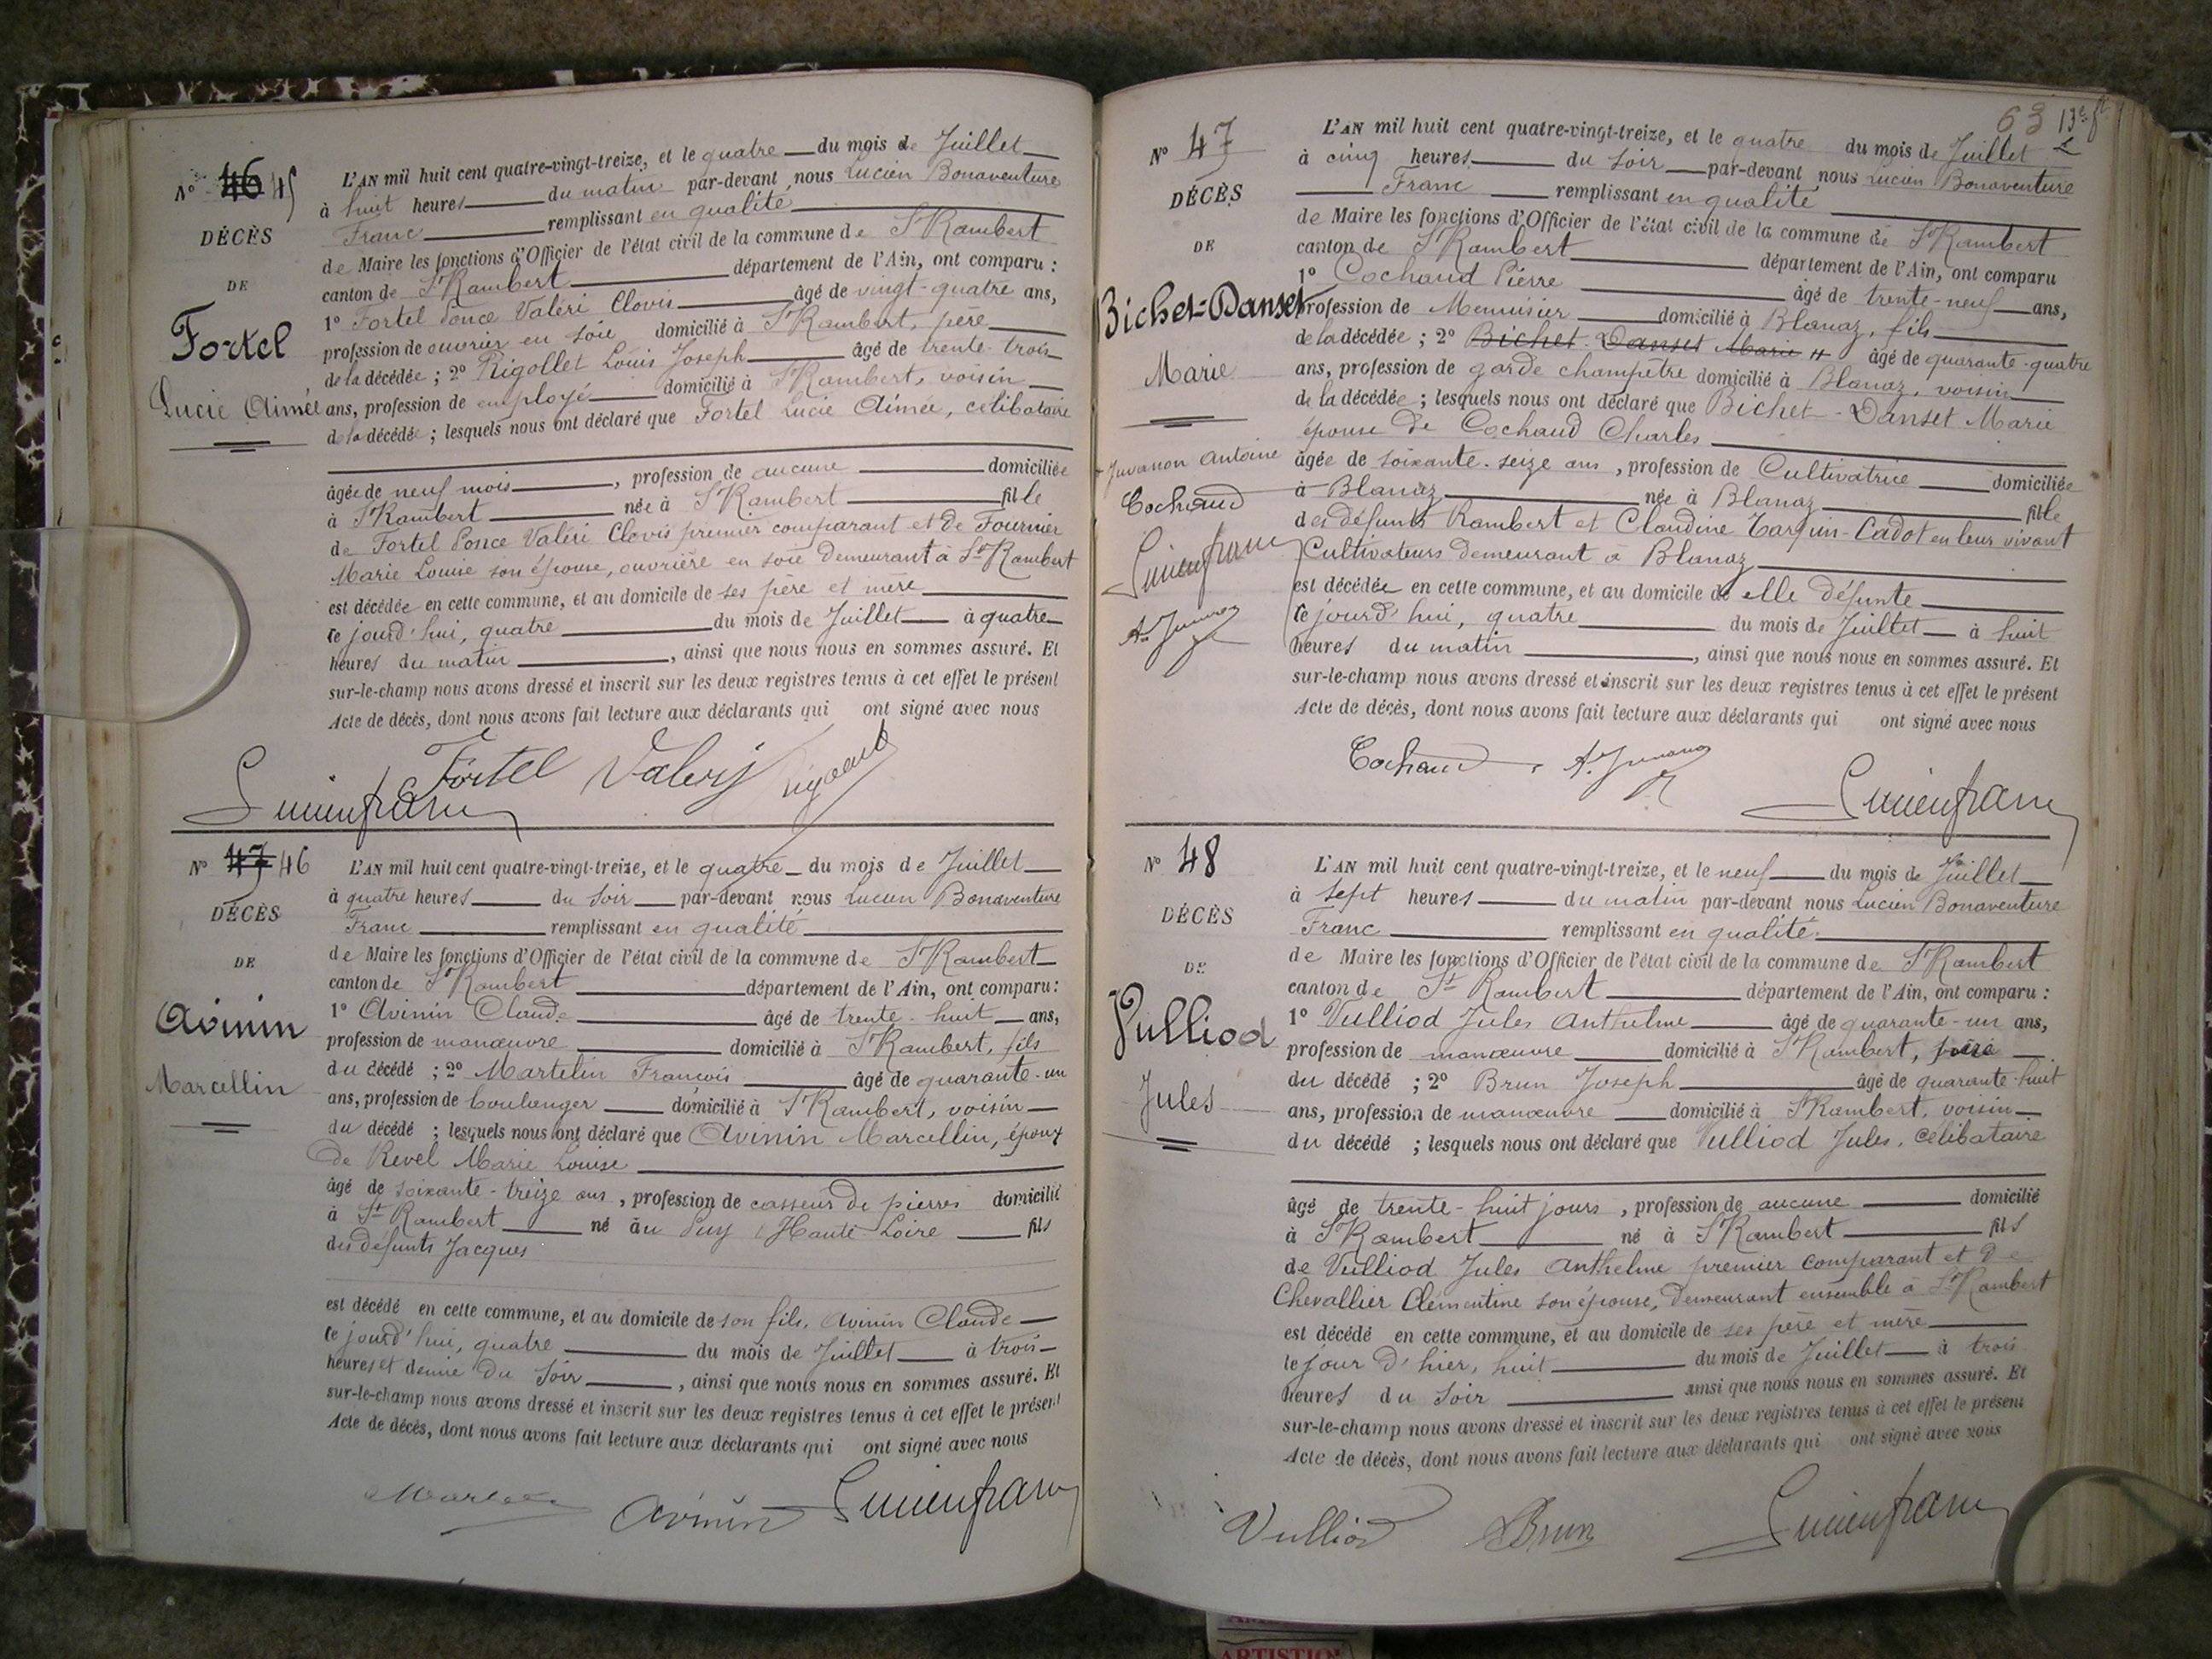 N° 46 45
DÉCÈS
DE
Fortel
Lucie Aimée
L'AN mil huit cent quatre-vingt-treize, et le quatre du mois de Juillet
à huit heures du matin par-devant nous Lucien Bonaventure
Franc remplissant en qualité
de Maire les fonctions d'Officier de l'état civil de la commune de St Rambert
canton de St Rambert département de l'Ain, ont comparu :
1° Fortel Ponce Valéri Clovis âgé de vingt-quatre ans,
profession de ouvrier en soie domicilié à St Rambert, père
de la décédée ; 2° Rigollet Louis Joseph âgé de trente-trois
ans, profession de employé domicilié à St Rambert, voisin
de la décédée ; lesquels nous ont déclaré que Fortel Lucie Aimée, célibataire
âgée de neuf mois, profession de aucune domiciliée
à St Rambert née à St Rambert fille
de Fortel Ponce Valéri Clovis premier comparant et de Fournier
Marie Louise son épouse, ouvrière en soie demeurant à St Rambert
est décédée en cette commune, et au domicile de ses père et mère
ce jourd'hui, quatre du mois de Juillet à quatre
heures du matin, ainsi que nous nous en sommes assuré. Et
sur-le-champ nous avons dressé et inscrit sur les deux registres tenus à cet effet le présent
Acte de décès, dont nous avons fait lecture aux déclarants qui ont signé avec nous
Fortel Valery
Lucien franc
N° 47 46
DÉCÈS
DE
Avinin
Marcellin
L'AN mil huit cent quatre-vingt-treize, et le quatre du mois de Juillet
à quatre heures du soir par-devant nous Lucien Bonaventure
Franc remplissant en qualité
de Maire les fonctions d'Officier de l'état civil de la commune de St Rambert
canton de St Rambert département de l'Ain, ont comparu :
1° Avinin Claude âgé de trente-huit ans,
profession de manœuvre domicilié à St Rambert, fils
du décédé ; 2° Martelin François âgé de quarante-un
ans, profession de boulanger domicilié à St Rambert, voisin
du décédé ; lesquels nous ont déclaré que Avinin Marcellin, époux
de Revel Marie Louise
âgé de soixante-treize ans, profession de casseur de pierres domicilié
à St Rambert né au Puy (Haute Loire fils
des défunts Jacques
est décédé en cette commune, et au domicile de son fils, Avinin Claude
ce jourd'hui, quatre du mois de Juillet à trois
heures et demie du soir, ainsi que nous nous en sommes assuré. Et
sur-le-champ nous avons dressé et inscrit sur les deux registres tenus à cet effet le présent
Acte de décès, dont nous avons fait lecture aux déclarants qui ont signé avec nous
Avinin Lucien franc
63 13e ft
N° 47
DÉCÈS
DE
Bichet-Danset
Marie
Juvanon Antoine
Cochaud
Lucien franc
L'AN mil huit cent quatre-vingt-treize, et le quatre du mois de Juillet
à cinq heures du soir par-devant nous Lucien Bonaventure
Franc remplissant en qualité
de Maire les fonctions d'Officier de l'état civil de la commune de St Rambert
canton de St Rambert département de l'Ain, ont comparu
1° Cochaud Pierre âgé de trente-neuf ans,
profession de Menuisier domicilié à Blanaz, fils
de la décédée ; 2° Bichet-Danset Marie âgé de quarante-quatre
ans, profession de garde champêtre domicilié à Blanaz, voisin
de la décédée ; lesquels nous ont déclaré que Bichet-Danset Marie
épouse de Cochaud Charles
âgée de soixante-seize ans, profession de Cultivatrice domiciliée
à Blanaz née à Blanaz fille
des défunts Rambert et Claudine Tarquin-Cadot en leur vivant
Cultivateurs demeurant à Blanaz
est décédée en cette commune, et au domicile de elle défunte
ce jourd'hui, quatre du mois de Juillet à huit
heures du matin, ainsi que nous nous en sommes assuré. Et
sur-le-champ nous avons dressé et inscrit sur les deux registres tenus à cet effet le présent
Acte de décès, dont nous avons fait lecture aux déclarants qui ont signé avec nous
Cochaud
Lucien franc
N° 48
DÉCÈS
DE
Vulliod
Jules
L'AN mil huit cent quatre-vingt-treize, et le neuf du mois de Juillet
à sept heures du matin par-devant nous Lucien Bonaventure
Franc remplissant en qualité
de Maire les fonctions d'Officier de l'état civil de la commune de St Rambert
canton de St Rambert département de l'Ain, ont comparu :
1° Vulliod Jules Anthelme âgé de quarante-un ans,
profession de manœuvre domicilié à St Rambert, père
du décédé ; 2° Brun Joseph âgé de quarante-huit
ans, profession de manœuvre domicilié à St Rambert, voisin
du décédé ; lesquels nous ont déclaré que Vulliod Jules, célibataire
âgé de trente-huit jours, profession de aucune domicilié
à St Rambert né à St Rambert fils
de Vulliod Jules Anthelme premier comparant et de
Chevallier Clémentine son épouse, demeurant ensemble à St Rambert
est décédé en cette commune, et au domicile de ses père et mère
le jour d'hier, huit du mois de Juillet à trois
heures du soir ainsi que nous nous en sommes assuré. Et
sur-le-champ nous avons dressé et inscrit sur les deux registres tenus à cet effet le présent
Acte de décès, dont nous avons fait lecture aux déclarants qui ont signé avec nous
Vulliod Brun Lucien franc